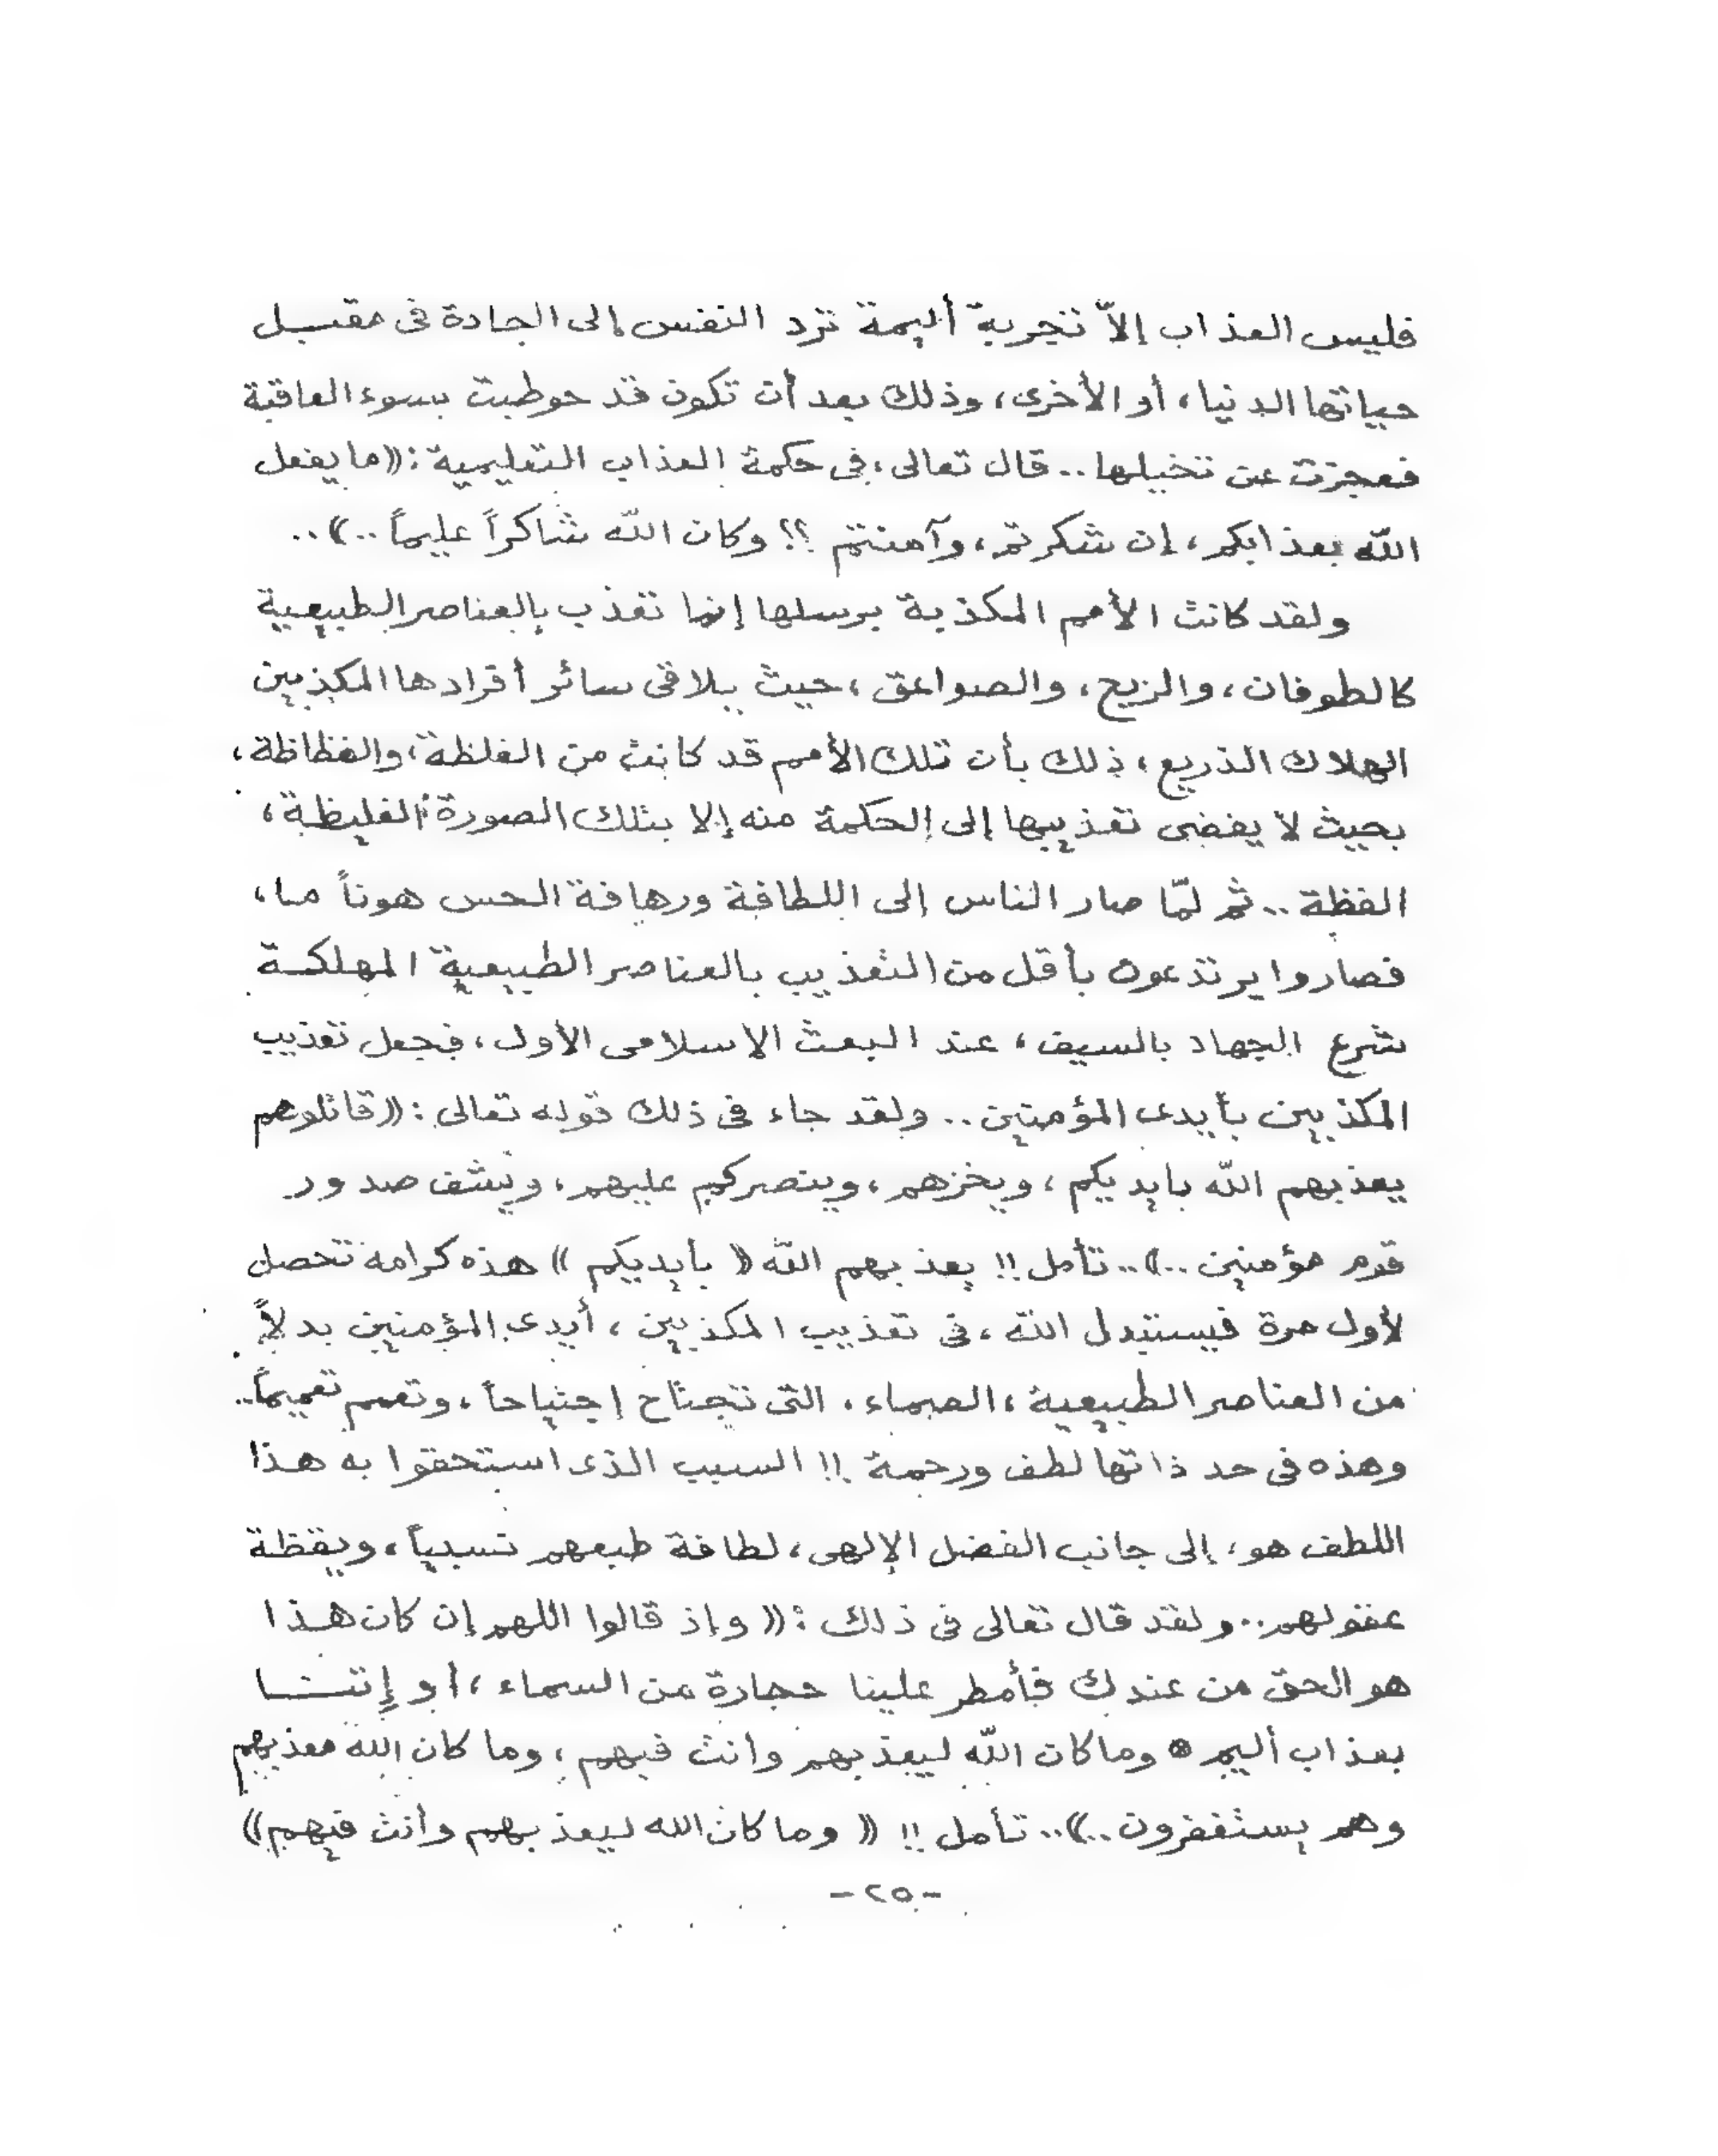 فليس العذاب إلاّ تجربة أليمة ترد النفس إلى الجادة فى مقبــل
حياتها الدنيا، أو الأخرى، وذلك بعد أن تكون قد خوطبت بسوء العاقبة
فعجزت عن تخيلها.. قال تعالى، فى حكمة العذاب التعليمية: ((ما يفعل
اللّه بعذابكم، إن شكرتم، وآمنتم ؟؟ وكان اللّه شاكراً عليماً..))..
ولقد كانت الأمم المكذبة برسلها إنما تعذب بالعناصر الطبيعية
كالطوفان، والريح، والصواعق، حيث يلاقى سائر أفرادها المكذبين
الهلاك الذريع، ذلك بأن تلك الأمم قد كانت من الغلظة، والفظاظة،
بحيث لا يفضى تعذيبها إلى الحكمة منه إلا بتلك الصورة الغليظة،
الفظة.. ثم لمّا صار الناس إلى اللطافة ورهافة الحس هوناً ما،
فصاروا يرتدعون بأقل من التعذيب بالعناصر الطبيعية المهلكــة
شرع الجهاد بالسيف، عند البعث الاسلامى الأول، فجعل تعذيب
المكذبين بأيدى المؤمنين.. ولقد جاء فى ذلك قوله تعالى: ((قاتلوهم
يعذبهم اللّه بايديكم، ويخزهم، وينصركم عليهم، ويشف صدور
قوم مؤمنين..)).. تأمل !! يعذبهم اللّه (( بأيديكم )) هذه كرامة تحصل
لأول مرة فيستبدل اللّه، فى تعذيب المكذبين، أيدى المؤمنين بدلاً
من العناصر الطبيعية، الصماء، التى تجتاح إجتياحاً، وتعم تعميماً..
وهذه فى حد ذاتها لطف ورحمة !! السبب الذى استحقوا به هـذا
اللطف هو، إلى جانب الفضل الإلهى، لطافة طبعهم نسبياً، ويقظة
عقولهم.. ولقد قال تعالى فى ذلك: (( وإذ قالوا اللهم إن كان هـذا
هو الحق من عندك فأمطر علينا حجارة من السماء، أو إئتنــا
بعذاب أليم * وما كان اللّه ليعذبهم وانت فيهم، وما كان اللّه معذبهم
وهم يستغفرون..)).. تأمل !! (( وما كان الله ليعذبهم وأنت فيهم))
- ٢٥ -